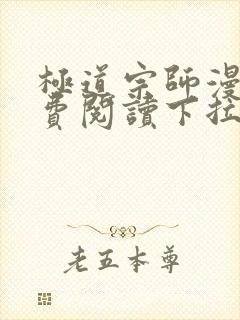 極道宗師漫
費閱讀下拉
老五本尊